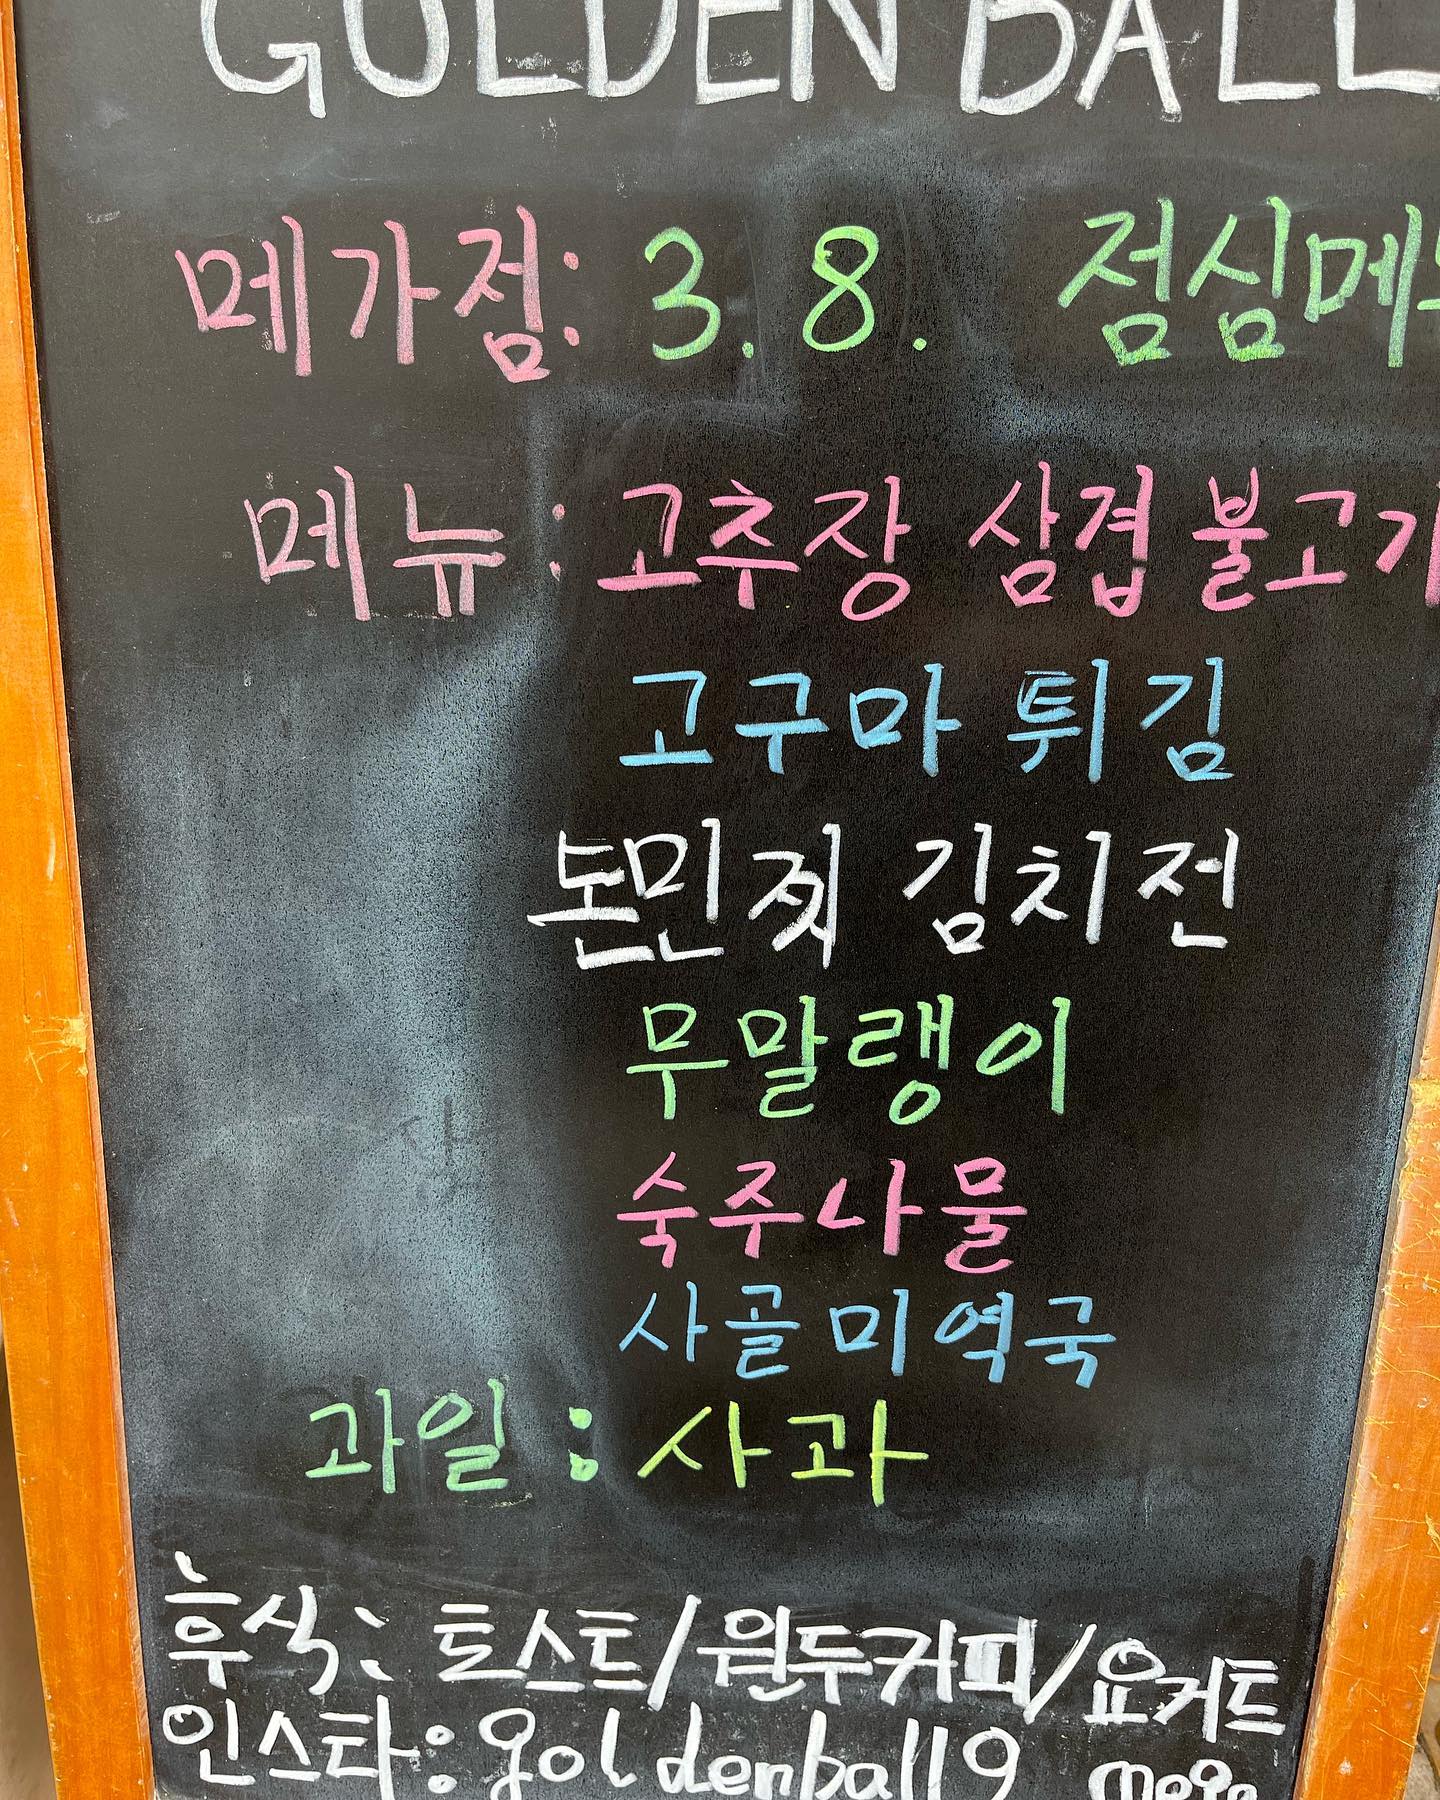 GOLDEN BALL
메가점: 3.8. 점심메뉴
메뉴: 고추장 삼겹 불고기
고구마 튀김
김치전
무말랭이
숙주나물
사골미역국
과일: 사과
후식: 토스트/원두커피/요거트
인스타: goldenball9